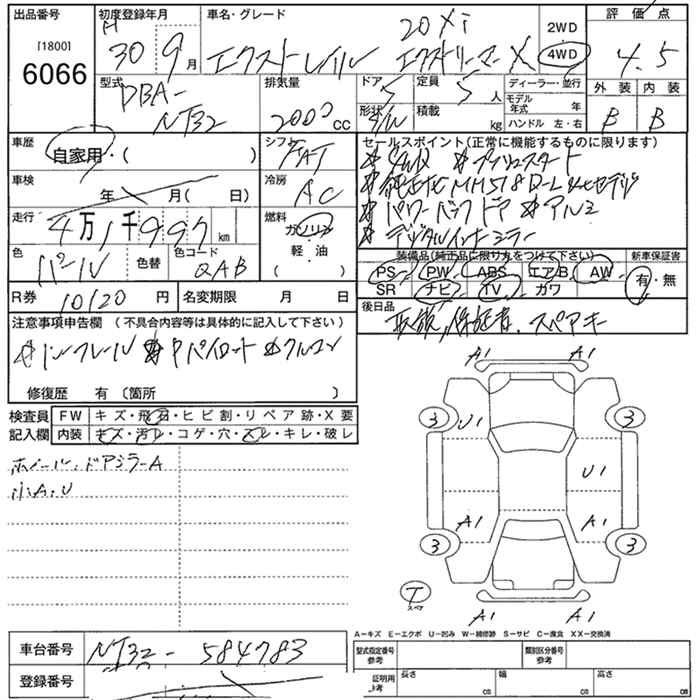 出品番号 初度登録年月 車名・グレード 評価点
[1800] H 20Xi 2WD
6066 30 9月 エクストレイル エクストリーマーX 4WD 4.5
型式 排気量 ドア 定員 ディーラー・並行 外装 内装
DBA- 5 5人 モデル年式 年
NT32 2000cc 形状 S/W 積載 kg ハンドル 左・右 B B
車歴 シフト セールスポイント(正常に機能するものに限ります)
自家用・( ) FAT
車検 冷房
年 月( 日) AC
走行 燃料
4万1千997km ガソリン
色 色替 色コード 軽・油
パール QAB ( )
* パワーバックドア * アルミ
* デジタルインナーミラー
装備品(純正品に限り丸をつけて下さい) 新車保証書
PS PW ABS エアB AW
SR ナビ TV カワ 有・無
R券 10120円 名変期限 月 日
後日品
取説,保証書.スペアキー
注意事項申告欄 (不具合内容等は具体的に記入して下さい)
修復歴 有 〔箇所 〕
検査員 FW キズ・飛石・ヒビ割・リペア跡・X要
記入欄 内装 キズ・汚レ・コゲ・穴・スレ・キレ・破レ
ホイール.ドアミラーA
小A.U
A1 A1
3 U1 3
U1
A1 A1
3 3
T
スペア
A1 A1
A-キズ E-エクボ U-凹み W-補修跡 S-サビ C-腐食 XX-交換済
車台番号 NT32-584783 型式指定番号 参考 類別区分番号 参考
登録番号 証明用 参考 長さ cm 幅 cm 高さ cm